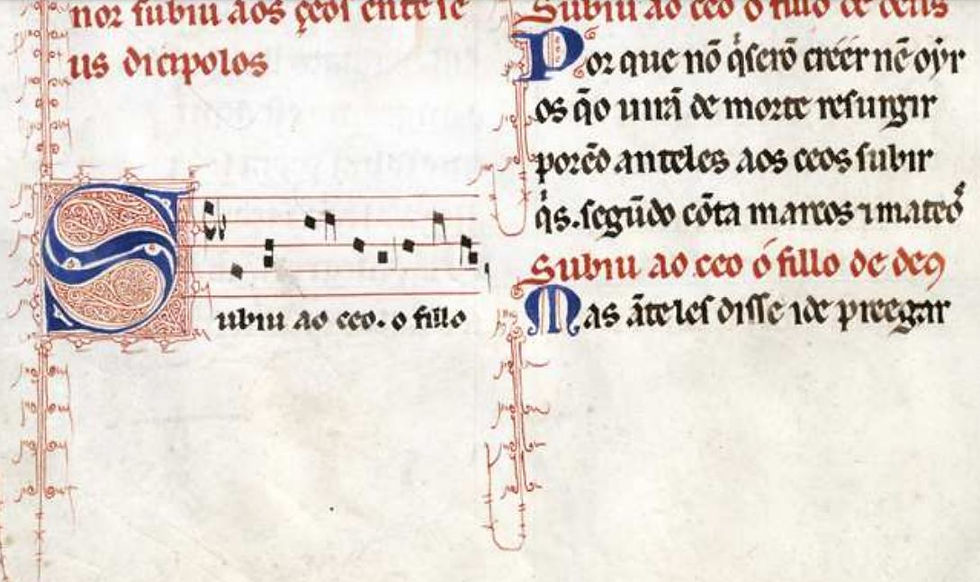 nor subiu aos çeos ente se
us dicipolos
Subiu ao ceo. o fillo
Subiu ao ceo o fillo de deus
Por que nõ q̇serõ creer nẽ oyr
os q̃o uirã de morte resurgir
porẽd anteles aos ceos subir
q̇s. segũdo cõta marcos ⁊ mateo
Subiu ao ceo o fillo de deꝯ
Mas ãteles disse ide preegar